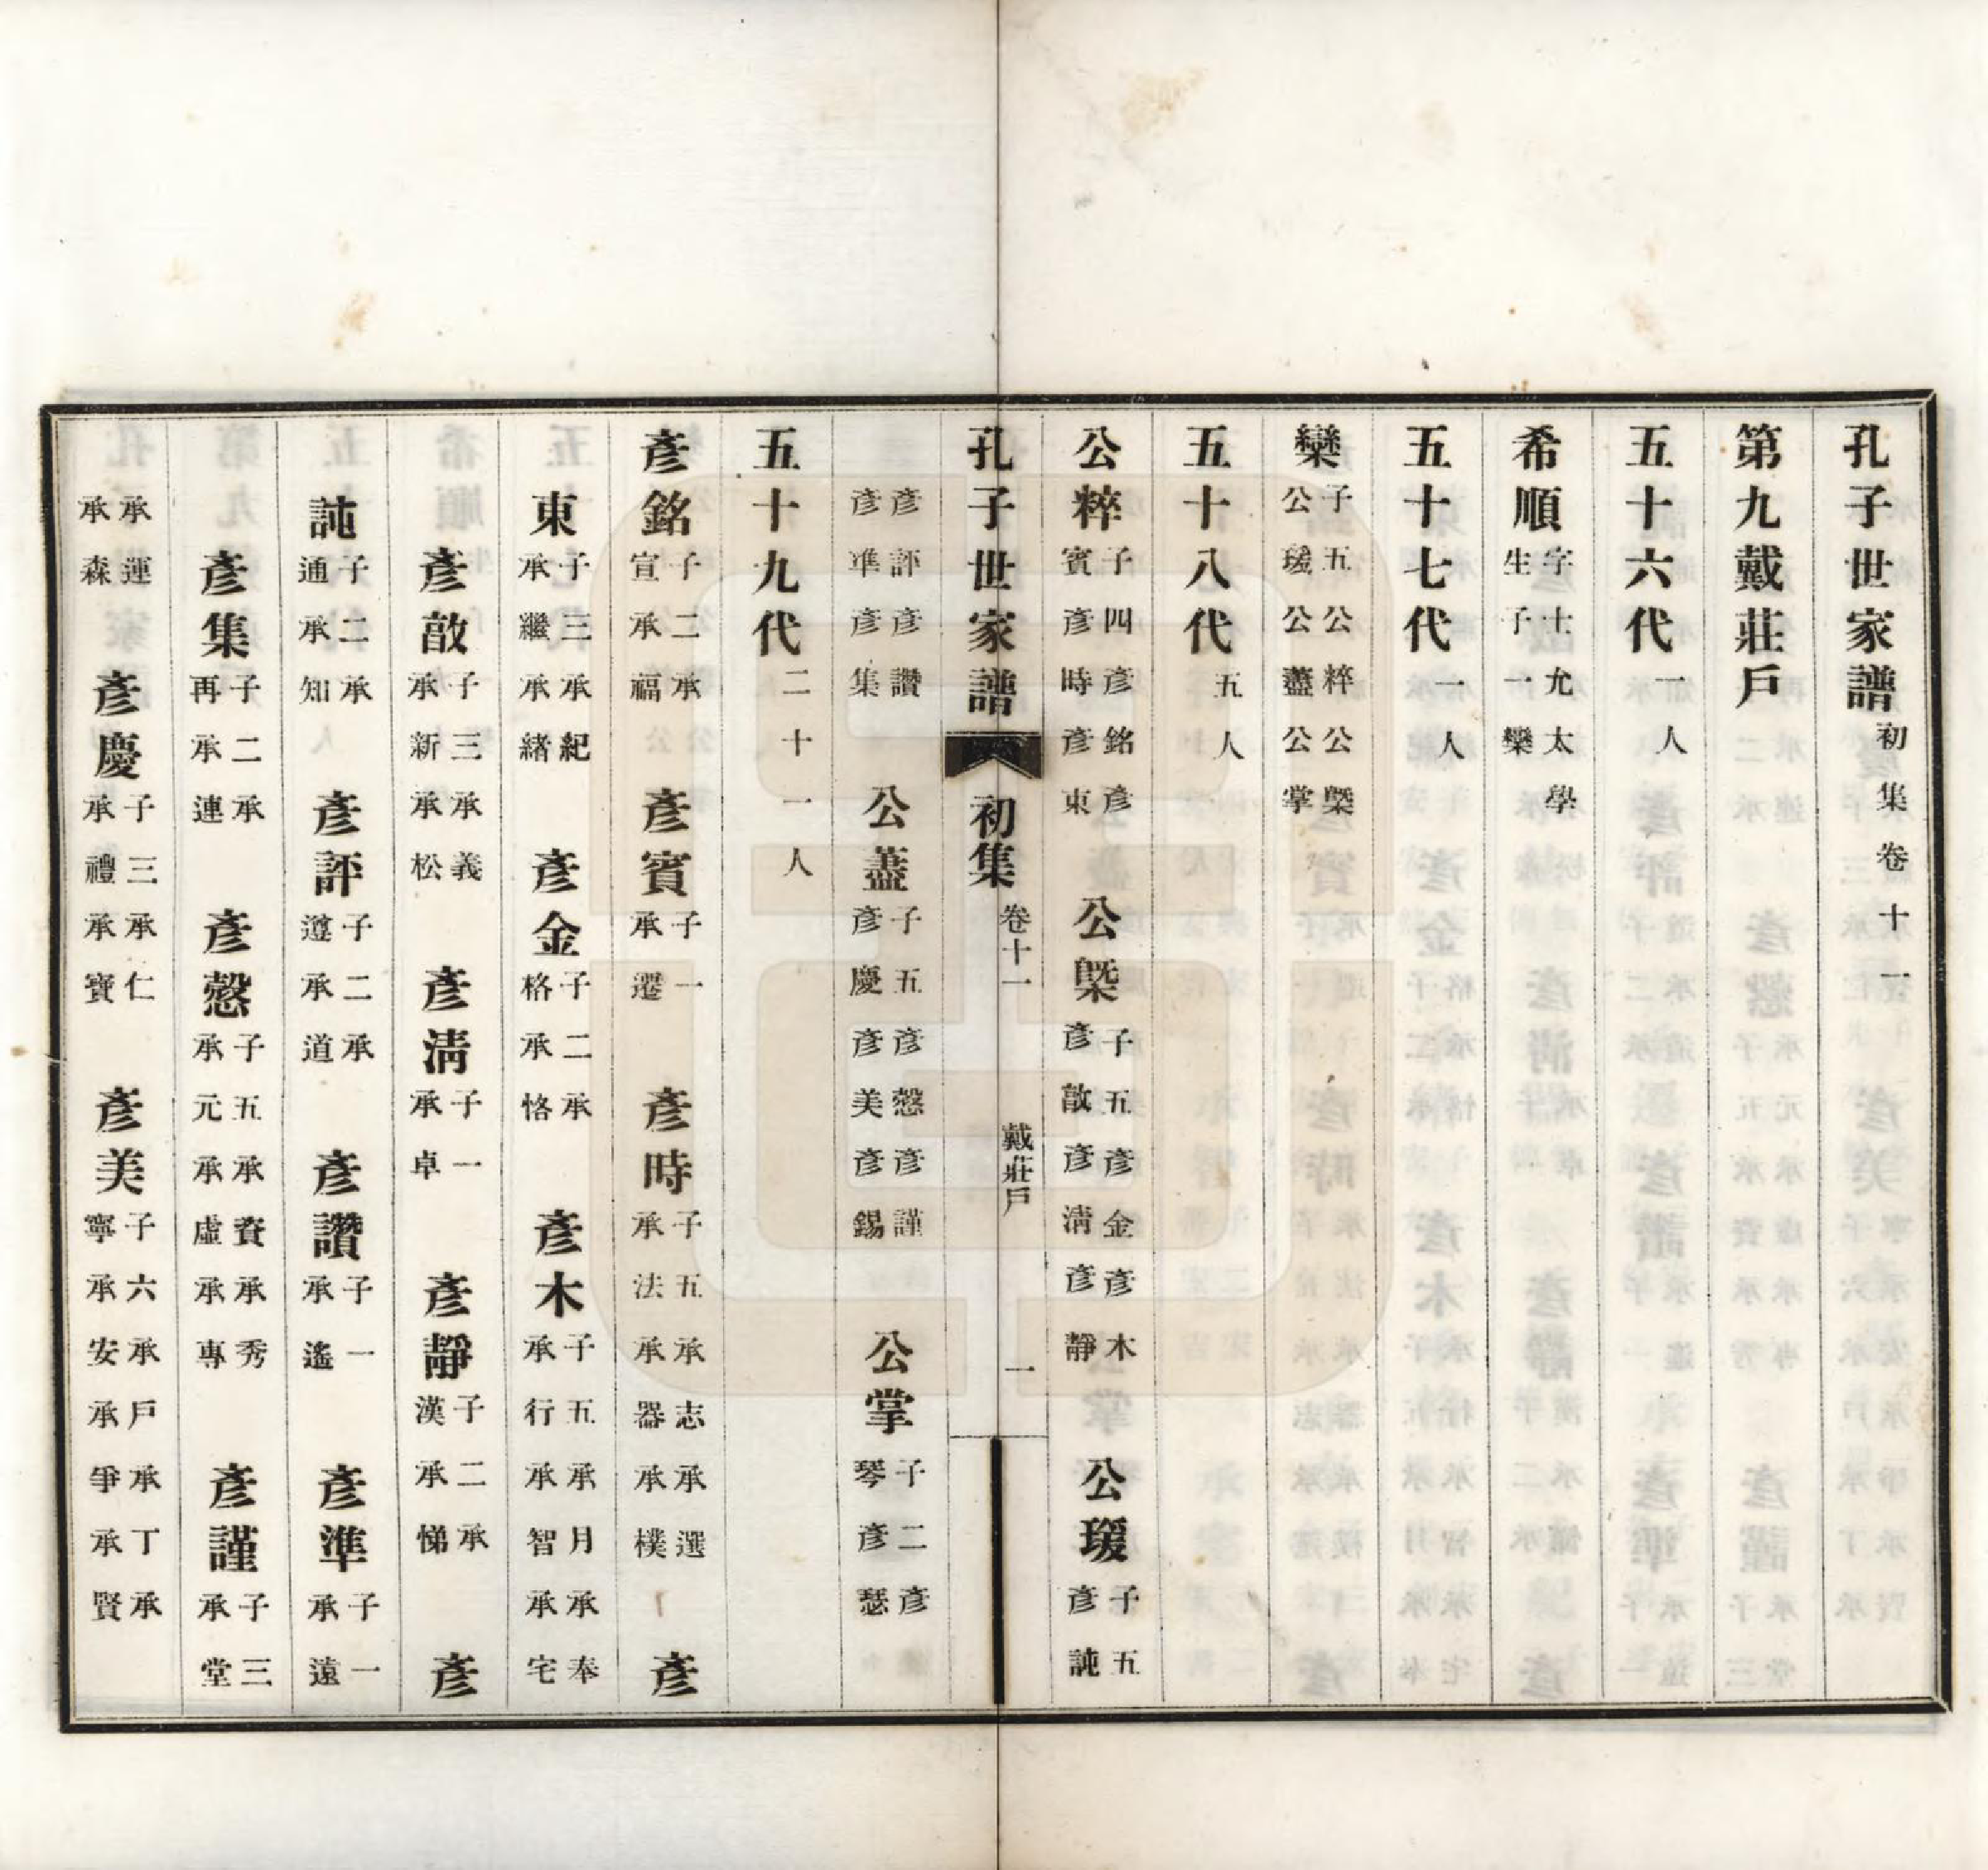 孔子世家譜初集卷十一
第九戴莊戶
五十六代一人
希順字士允太學生子一欒
五十七代一人
欒子五公粹公槩公瑗公藎公掌
五十八代五人
公粹子四彥銘彥賓彥時彥東　公槩子五彥金彥木彥敨彥淸彥靜　公瑗子五彥訰
孔子世家譜　初集　卷十一　戴莊戶　一
彥評彥讚彥準彥集　公藎子五彥愨彥謹彥慶彥美彥錫　公掌子二彥琴彥瑟
五十九代二十一人
彥銘子二承宣承福　彥賓子一承遷　彥時子五承志承選承法承器承樸　彥
東子三承紀承繼承緒　彥金子二承格承恪　彥木子五承月承奉承行承智承宅
彥敨子三承義承新承松　彥淸子一承卓　彥靜子二承漢承悌　彥
訰子二承通承知　彥評子二承遵承道　彥讚子一承遙　彥準子一承遠
彥集子二承再承連　彥愨子五承資承秀承元承虛承專　彥謹子三承堂
承運承森　彥慶子三承仁承禮承寶　彥美子六承戶承丁承寧承安承爭承賢